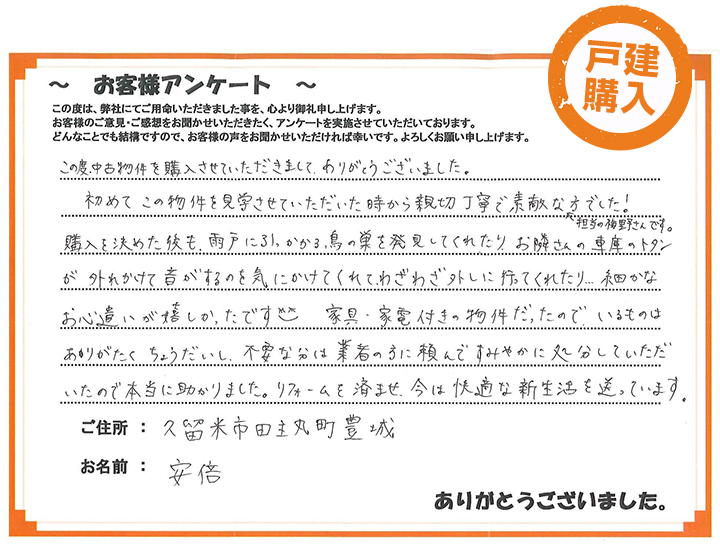 戸建
購入
～ お客様アンケート ～
この度は、弊社にてご用命いただきました事を、心より御礼申し上げます。
お客様のご意見・ご感想をお聞かせいただきたく、アンケートを実施させていただいております。
どんなことでも結構ですので、お客様の声をお聞かせいただければ幸いです。よろしくお願い申し上げます。
この度、中古物件を購入させていただきまして、ありがとうございました。
初めて この物件を見学させていただいた時から親切丁寧で素敵な方でした!
担当の梅野さんです。
購入を決めた後も、雨戸に引っかかる鳥の巣を発見してくれたり お隣さんの車庫のトタン
が 外れかけて音がするのを気にかけてくれて、わざわざ外しに行ってくれたり... 細かな
お心遣いが嬉しかったです 家具・家電付きの物件だったので、いるものは
ありがたく ちょうだいし、不要な分は業者の方に頼んですみやかに処分していただ
いたので本当に助かりました。リフォームを済ませ、今は快適な新生活を送っています。
ご住所 : 久留米市田主丸町豊城
お名前 : 安倍
ありがとうございました。